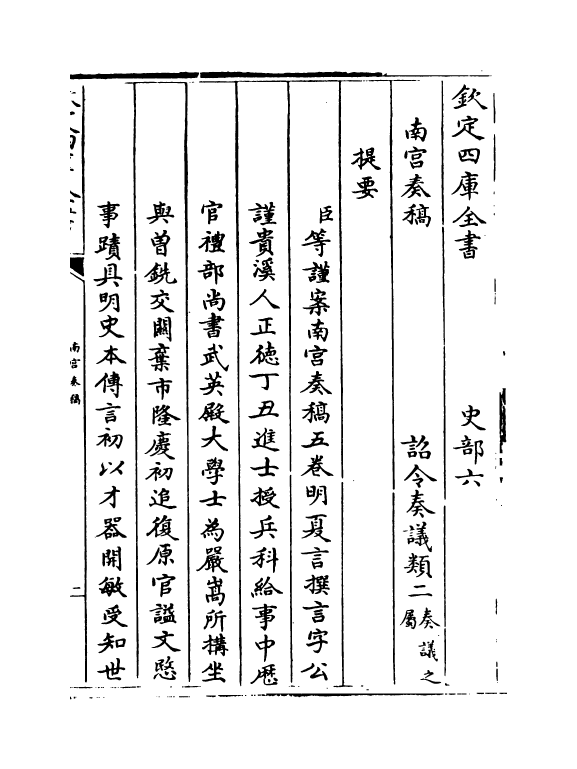 欽定四庫全書　史部六
南宫奏稿　詔令奏議類二奏議之屬
提要
臣等謹案南宫奏稿五巻明夏言撰言字公
謹貴溪人正徳丁丑進士授兵科給事中歷
官禮部尚書武英殿大學士為嚴嵩所搆坐
與曽銑交闗棄市隆慶初追復原官諡文愍
事蹟具明史本傳言初以才器開敏受知世
南宫奏稿
二